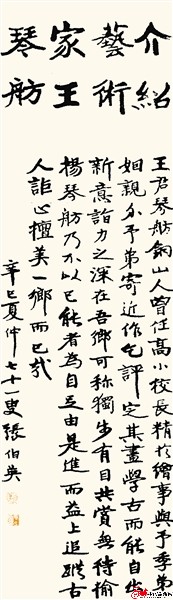 介紹
藝術
家王
琴舫
王君琴舫銅山人曾任高小校長精於繪事與予季弟
姻親介予弟寄近作乞評定其畫學古而能自出
新意詣力之深在吾鄉可稱獨步有目共賞無待揄
揚琴舫乃不以已能者為自足由是進而益上追蹤古
人詎止擅美一鄉而已哉
辛巳夏仲七十一叟張伯英